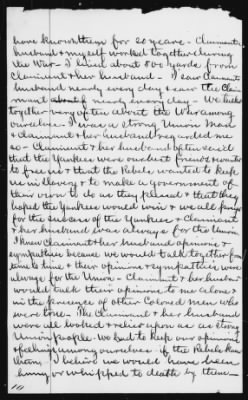 have known them for 20 years - Claimants
husband & myself worked together during
the War - I lived about 800 yards from
Claimant & her husband - I saw Claimants
husband nearly every day & saw the Clai-
mant nearly every day - We talked
together very often about the War among
ourselves - I was a strong Union Man
& Claimant & her husband regarded me
so - Claimant & her husband often said
that the Yankees were our best friends & wanted
to free us & that the Rebels wanted to keep
us in slavery & to make a government of
their own to do as they pleased & that they
hoped the Yankees would win & we all prayed
for the success of the Yankees & Claimant
& her husband was always for the Union
I knew Claimant & her husband opinions &
sympathies because we would talk together from
time to time & their opinions & sympathies were
always for the Union - Claimant & her husband
would talk their opinions to me alone &
in the presence of other Colored men who
were true - The Claimant & her husband
were all looked & relied upon as as strong
Union people. We had to keep our opinions
& feelings among ourselves if the Rebels knew
them I believe we would have been
hung or whipped to death by them -
10